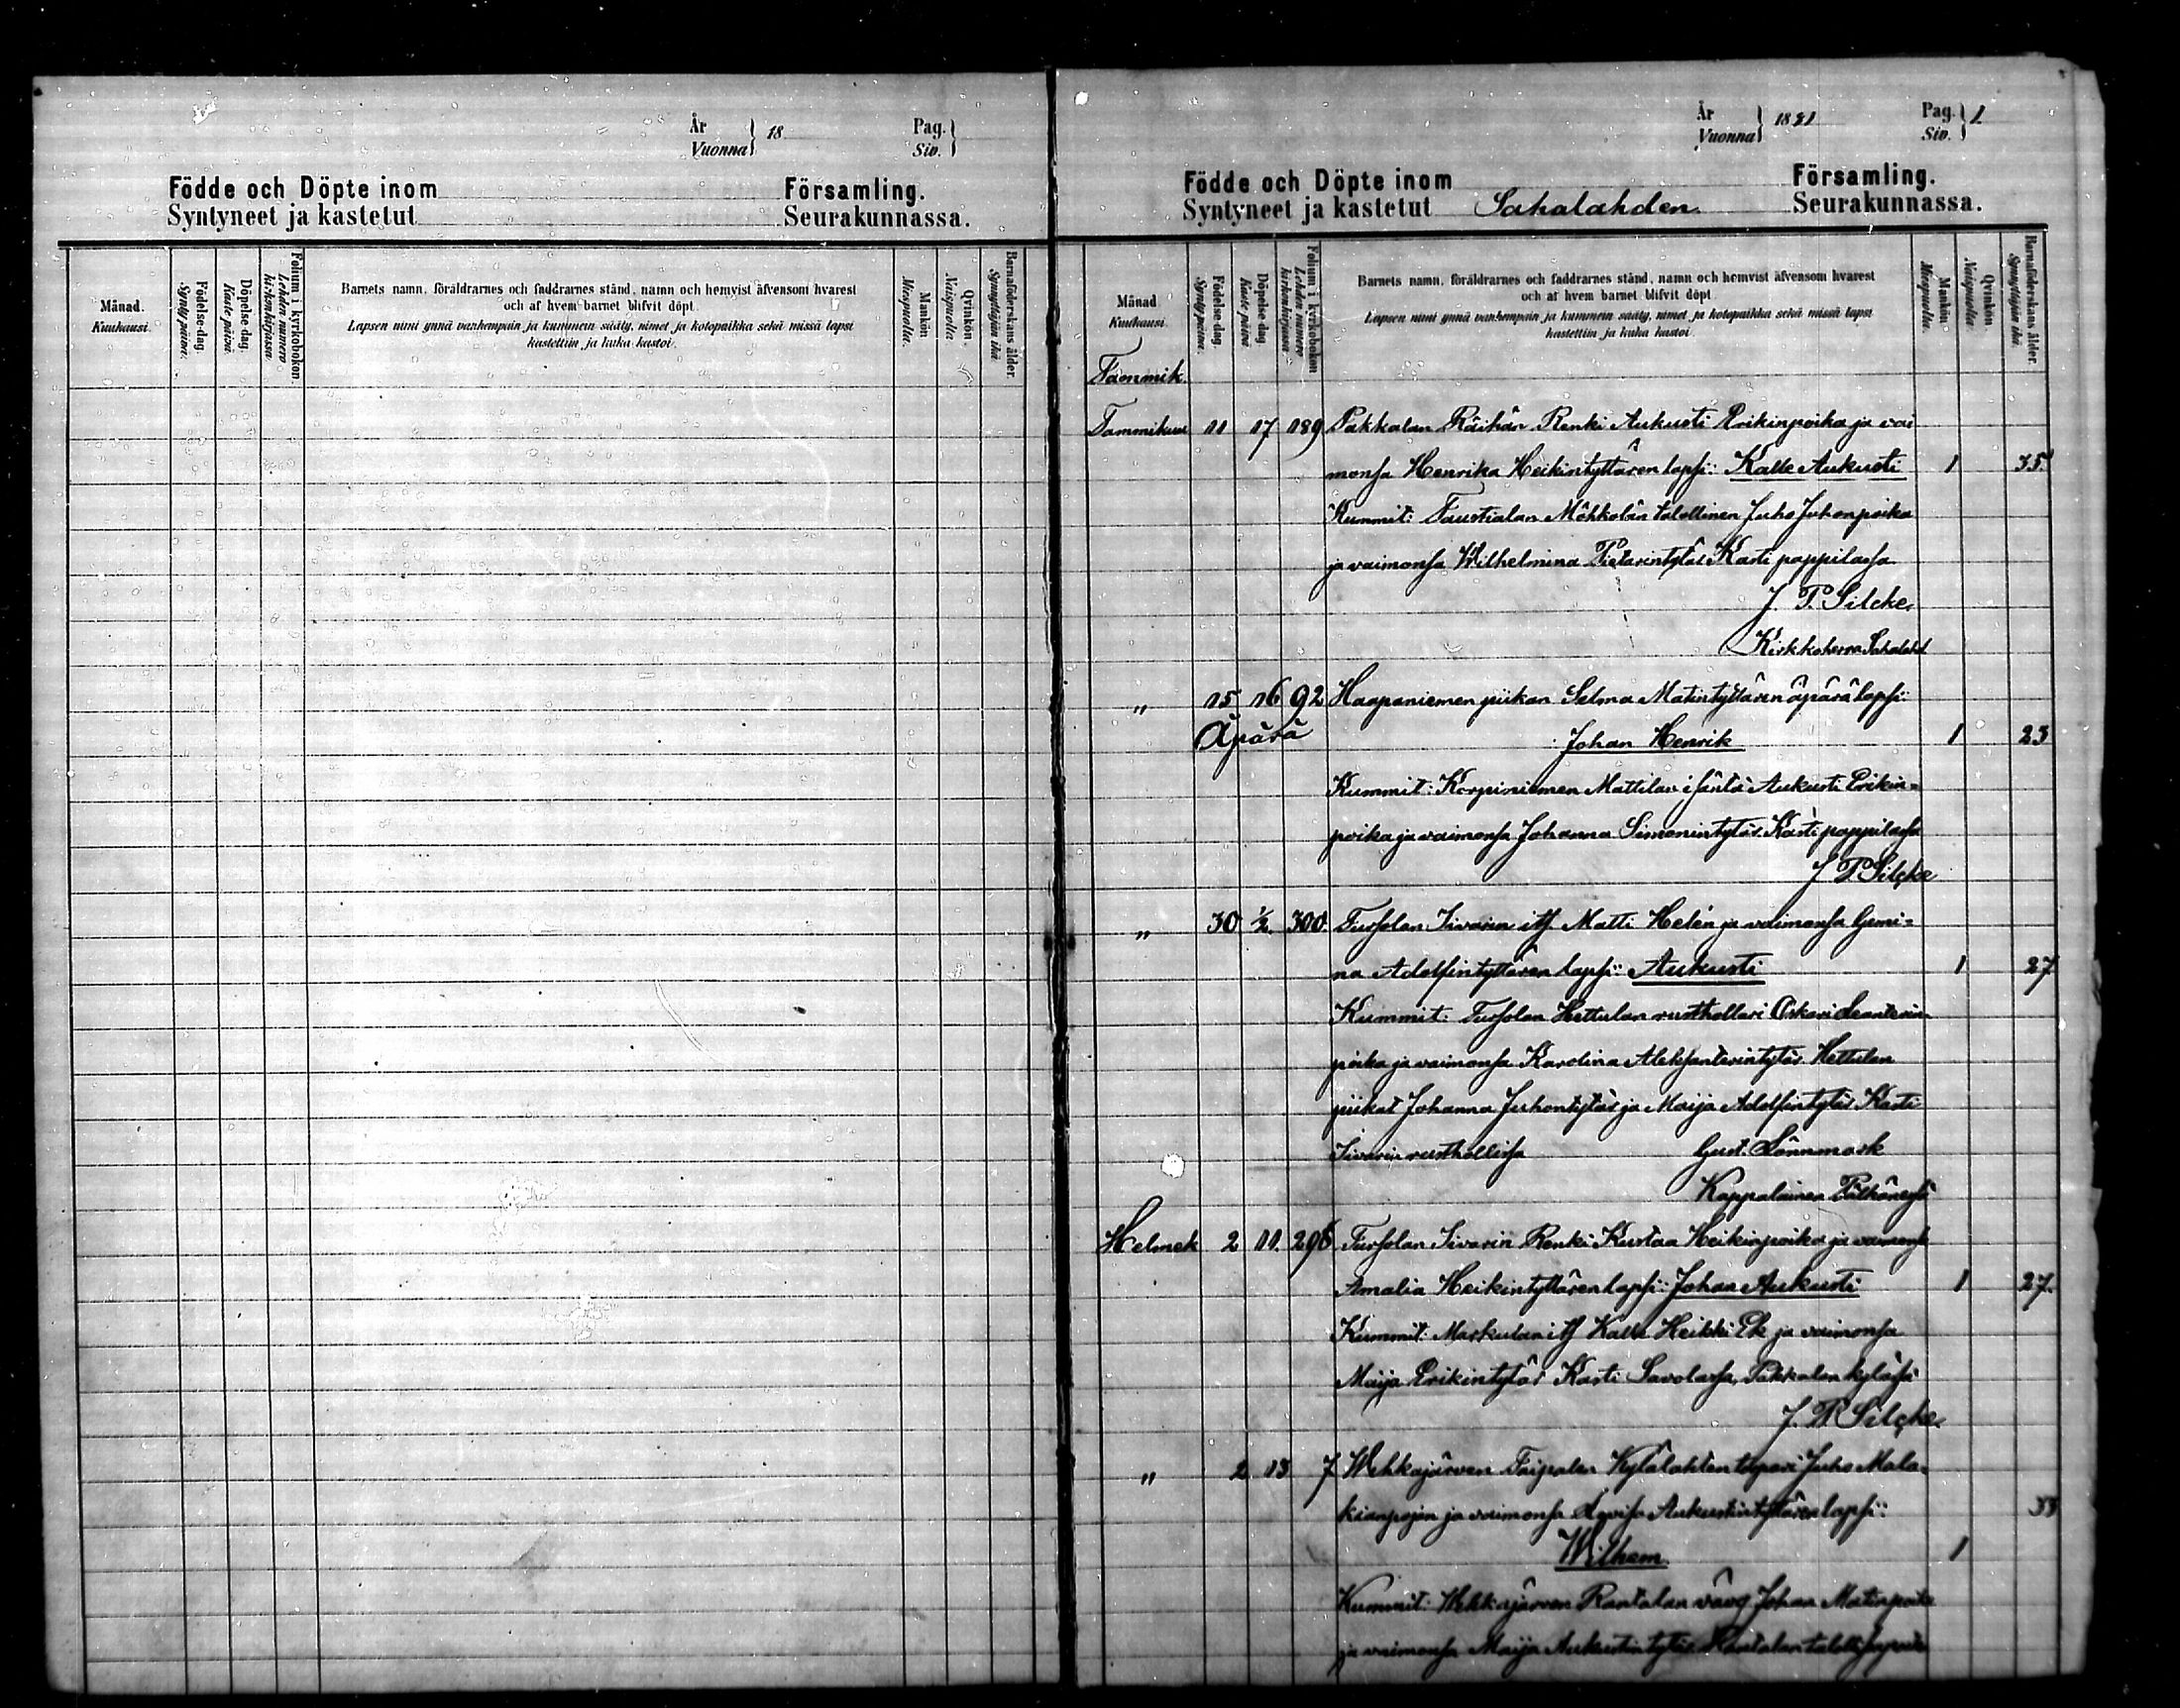 År
Vuonna } 18
Pag.
Siv. }
Födde och Döpte inom Församling.
Syntyneet ja kastetut Seurakunnassa.
Månad.
Kuukausi.
Födelse-dag.
Synty päivä.
Döpelse dag.
Kaste päivä.
Folium i kyrkoboken.
Lehden numero kirkonkirjassa.
Barnets namn, föräldrarnes och faddrarnes stånd, namn och hemvist äfvensom hvarest
och af hvem barnet blifvit döpt.
Lapsen nimi ynnä vanhempain ja kummein sääty, nimet ja kotopaikka sekä missä lapsi
kastettiin ja kuka kastoi.
Mankön.
Miespuolta.
Qvinkön.
Vaispuolta.
Barnaföderskans ålder.
Synnyttäjän ikä.
År
Vuonna } 1891
Pag.
Siv. } 1
Födde och Döpte inom Församling.
Syntyneet ja kastetut Sahalahden Seurakunnassa.
Månad
Kuukausi.
Födelse dag.
Synty päivä.
Döpelse dag.
Kaste päivä
Folium i kyrkoboken
Lehden numero kirkonkirjassa.
Barnets namn, föräldrarnes och faddrarnes stånd, namn och hemvist äfvensom hvarest
och af hvem barnet blifvit döpt
Lapsen nimi ynnä vanhempain ja kummein sääty, nimet ja kotopaikka sekä missä lapsi
kastettiin ja kuka kastoi
Mankön.
Miespuolta.
Qvinkön
Vaispuolta
Barnaföderskans ålder.
Synnyttäjän ikä.
Tammik.
Tammikuu 11 17 189 Pakkalan Räihän Renki Aukusti Erikinpoika ja vai
monsa Henrika Heikintyttären lapsi: Kalle Aukusti 1 35
Kummit: Taustialan Möhkölän talollinen Juho Juhonpoika
ja vaimonsa Wilhelmina Pietarintytär Kasti pappilassa
J. P. Silcke.
Kirkkoherra Sahalahd
" 15 16 92 Haapaniemen piikan Selma Matintyttären äpärä lapsi:
Äpärä Johan Henrik 1 23
Kummit: Korpiniemen Mattilan isäntä Aukusti Erikin=
poika ja vaimonsa Johanna Simonintytär. Kasti pappilassa
J P Silcke
" 30 1/2. 300. Tursolan Iivarin its. Matti Helén ja vaimonsa Gemi=
na Adolfintyttären lapsi: Aukusti 1 27
Kummit: Tursolan Hettulan rusthollari Oskari Santerin
poika ja vaimonsa Karolina Aleksanterintytär. Hettulan
piikat Johanna Juhontytär ja Maija Adolfintytär Kasti
Iivarin rusthollissa Gust. Lönnmark
Kappalainen Pälkäneessä
Helmek 2 11. 296 Tursolan Iivarin Renki Kustaa Heikinpoika ja vaimonsa
Amalia Heikintyttären lapsi: Johan Aukusti 1 27.
Kummit: Markulan its Kalle Heikki Ek ja vaimonsa
Maija Erikintytär Kasti Savolassa, Pakkalan kylässä
J. P. Silcke.
" 2 13 7 Wehkajärven Taipalen Kylälahten torpari Juho Mala=
kianpojan ja vaimonsa Lovisa Aukustintyttären lapsi: 33
Wilhem 1
Kummit: Wehkajärven Rantalan vävy Johan Matinpoika
ja vaimonsa Maija Aukustintytär Rantalan